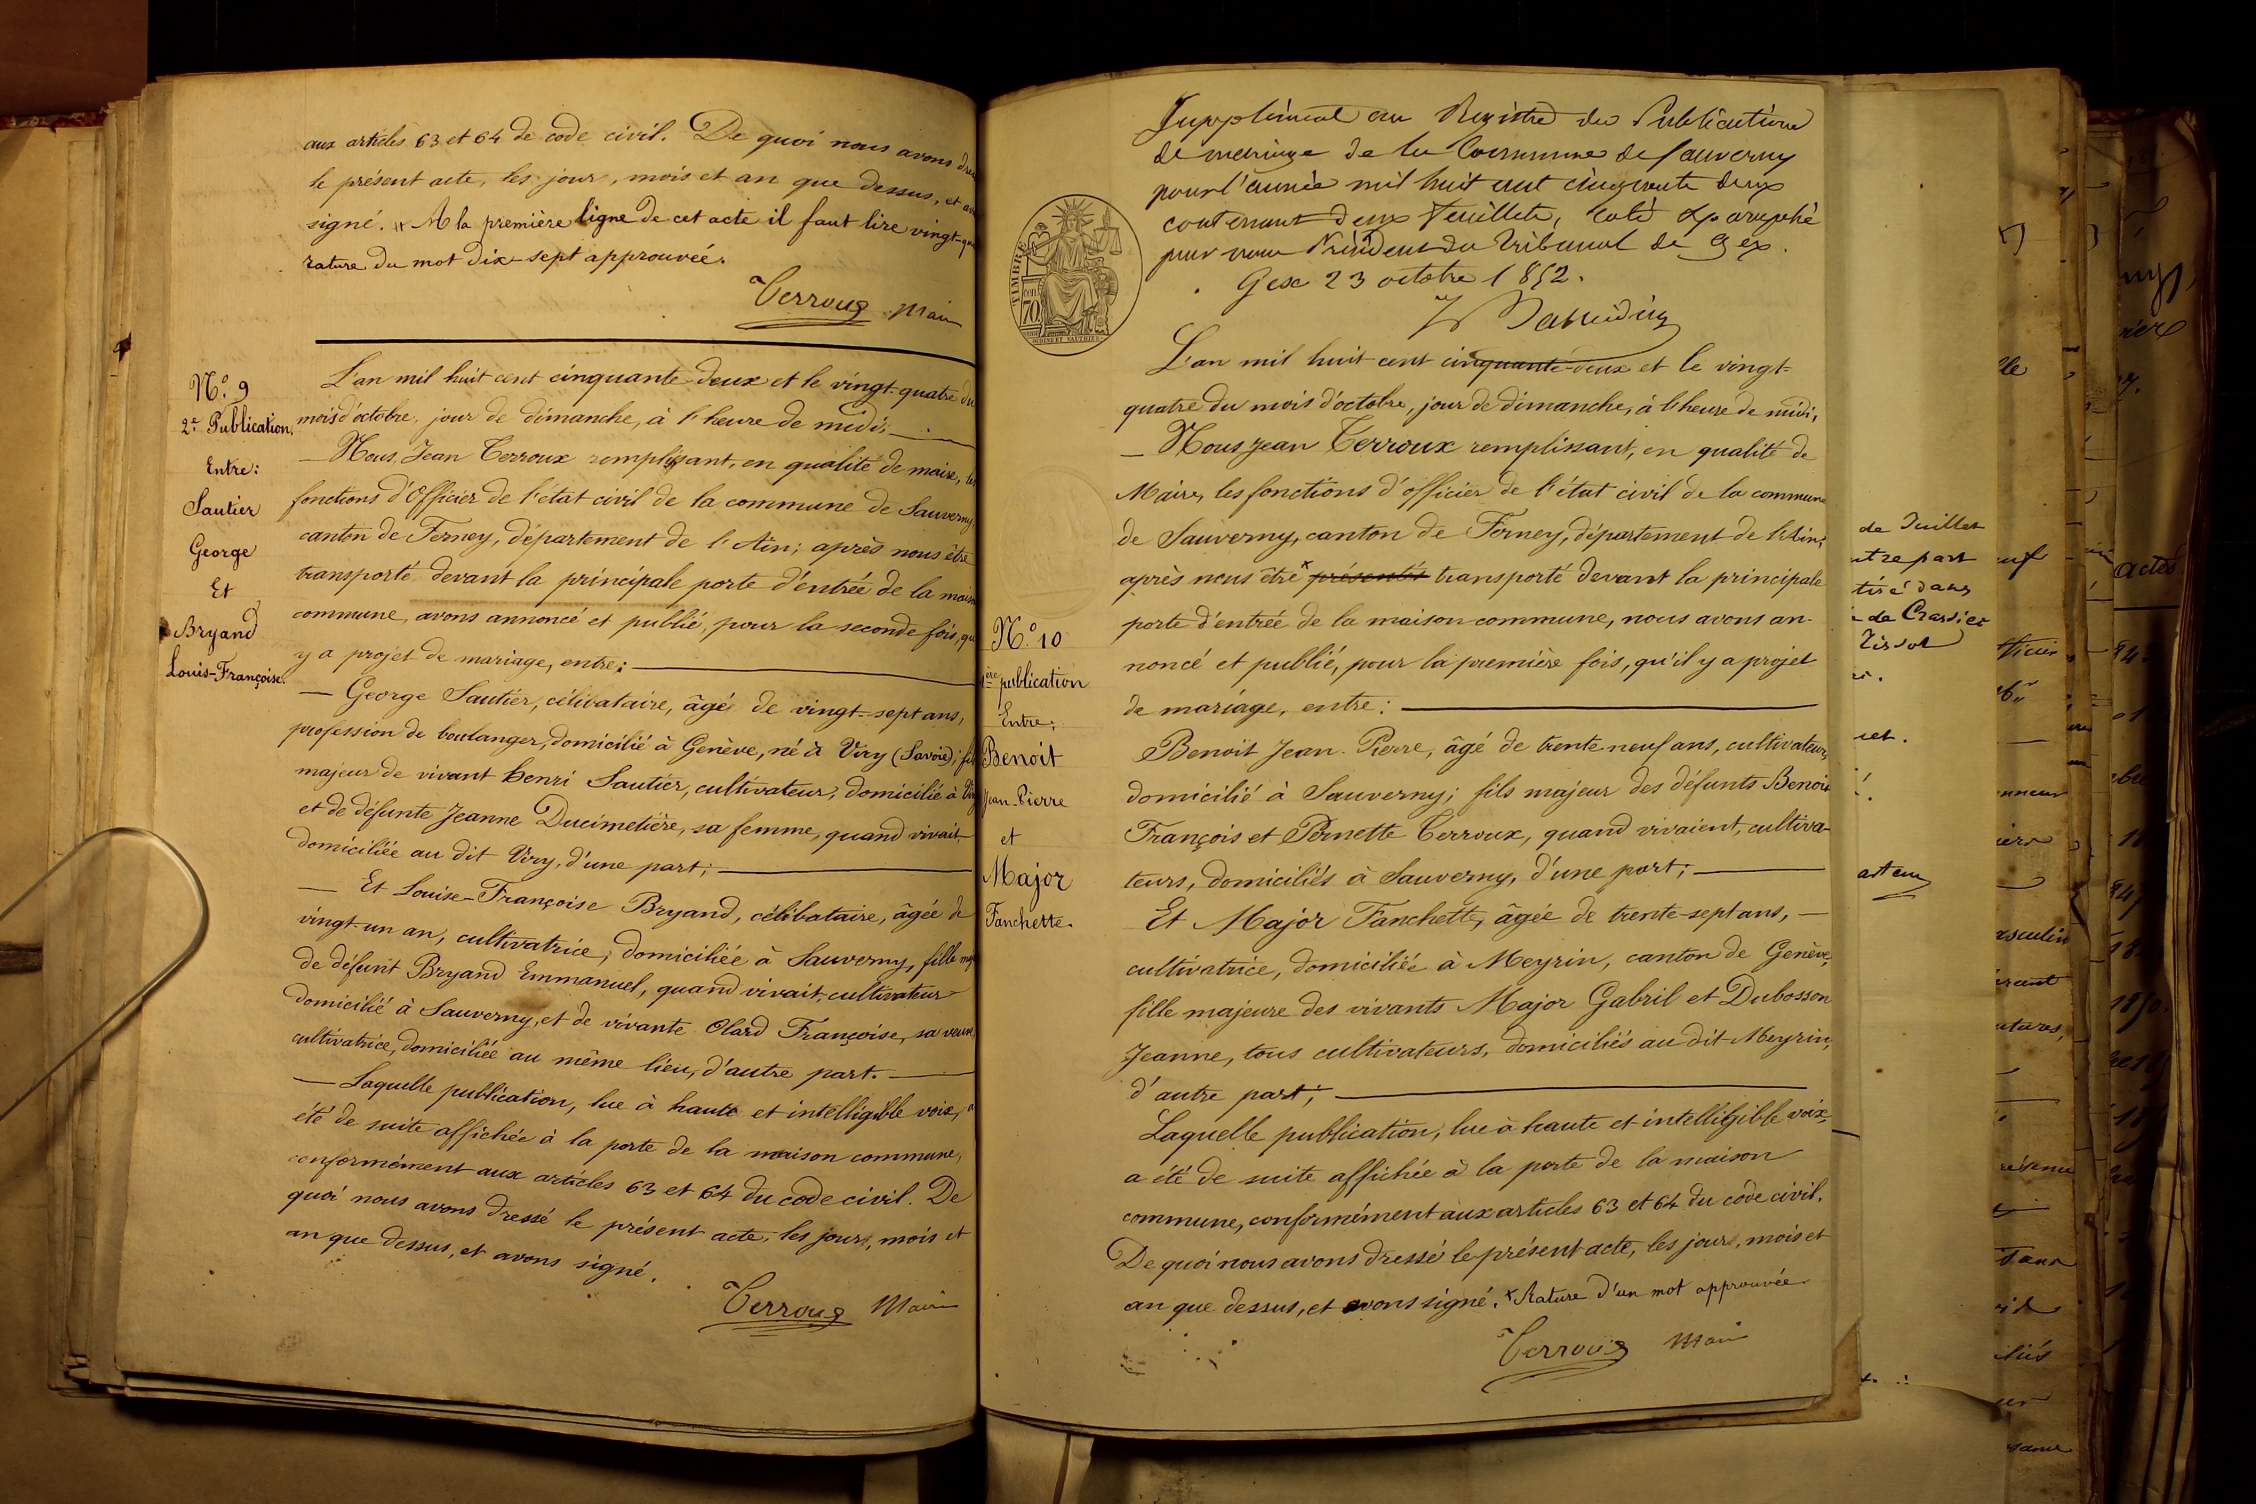 aux articles 63 et 64 de code civil. De quoi nous avons
le présent acte, les jour, mois et an que dessus, et
signé. A la première ligne de cet acte il faut lire vingt-
rature du mot dix-sept approuvée.
Terroux Maire
N.º 9
2.e Publication.
Entre:
Sautier
George
Et
Bryand
Louis-Françoise.
L'an mil huit cent cinquante-deux et le vingt-quatre du
mois d'octobre, jour de dimanche, à l'heure de midi,
Nous Jean Terroux remplissant, en qualité de maire, les
fonctions d'Officier de l'état civil de la commune de Sauverny,
canton de Ferney, département de l'Ain; après nous être
transporté devant la principale porte d'entrée de la maison
commune, avons annoncé et publié, pour la seconde fois, qu
y a projet de mariage, entre:
George Sautier, célibataire, âgé de vingt-sept ans,
profession de boulanger, domicilié à Genève, né à Viry (Savoie); fils
majeur de vivant Henri Sautier, cultivateur, domicilié à Viry
et de défunte Jeanne Ducimetière, sa femme, quand vivait,
domiciliée au dit Viry, d'une part;
Et Louise-Françoise Bryand, célibataire, âgée de
vingt-un an, cultivatrice, domiciliée à Sauverny, fille
de défunt Bryand Emmanuel, quand vivait, cultivateur
domicilié à Sauverny, et de vivante Olard Françoise, sa veuve
cultivatrice, domiciliée au même lieu, d'autre part.
Laquelle publication, lue à haute et intelligible voix, a
été de suite affichée à la porte de la maison commune,
conformément aux articles 63 et 64 du code civil. De
quoi nous avons dressé le présent acte, les jours, mois et
an que dessus, et avons signé.
Terroux Maire
Supplément au Registre des Publications
de mariage de la Commune de Sauverny
pour l'année mil huit cent cinquante deux
contenant deux feuillets, coté & paraphé
par nous Président du Tribunal de Gex.
Gex 23 octobre 1852.
TIMBRE
70
N.º 10
1ère publication
Entre:
Benoit
Jean-Pierre
et
Major
Fanchette.
L'an mil huit cent cinquante-deux et le vingt-
quatre du mois d'octobre, jour de dimanche, à l'heure de midi,
Nous Jean Terroux remplissant, en qualité de
Maire, les fonctions d'officier de l'état civil de la commune
de Sauverny, canton de Ferney, département de l'Ain;
après nous être présenté transporté devant la principale
porte d'entrée de la maison commune, nous avons an-
noncé et publié, pour la première fois, qu'il y a projet
de mariage, entre:
Benoit Jean-Pierre, âgé de trente-neuf ans, cultivateur,
domicilié à Sauverny; fils majeur des défunts Benoit
François et Pernette Terroux, quand vivaient, cultiva-
teurs, domiciliés à Sauverny, d'une part;
Et Major Fanchette, âgée de trente-sept ans,
cultivatrice, domiciliée à Meyrin, canton de Genève,
fille majeure des vivants Major Gabril et Dubosson
Jeanne, tous cultivateurs, domiciliés au dit Meyrin,
d'autre part;
Laquelle publication, lue à haute et intelligible voix,
a été de suite affichée à la porte de la maison
commune, conformément aux articles 63 et 64 du code civil.
De quoi nous avons dressé le présent acte, les jours, mois et
an que dessus, et avons signé. Rature d'un mot approuvée
Terroux Maire
de Juillet
tre part
tiré dans
de Crassier
Tissot
actes